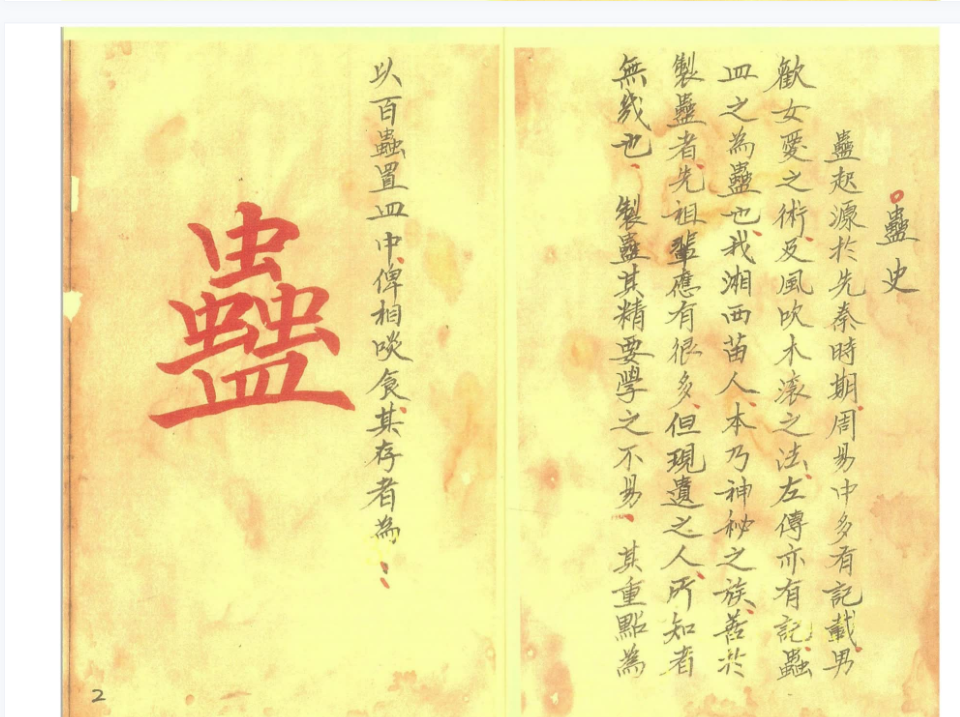 蠱史
蠱起源於先秦時期周易中多有記載男
歡女愛之術及風吹木滾之法左傳亦有記蟲
皿之為蠱也我湘西苗人本乃神秘之族善於
製蠱者先祖輩應有很多但現遺之人所知者
無幾也 製蠱其精要學之不易、其重點為
以百蟲置皿中俾相啖食其存者為⋮
蠱
2